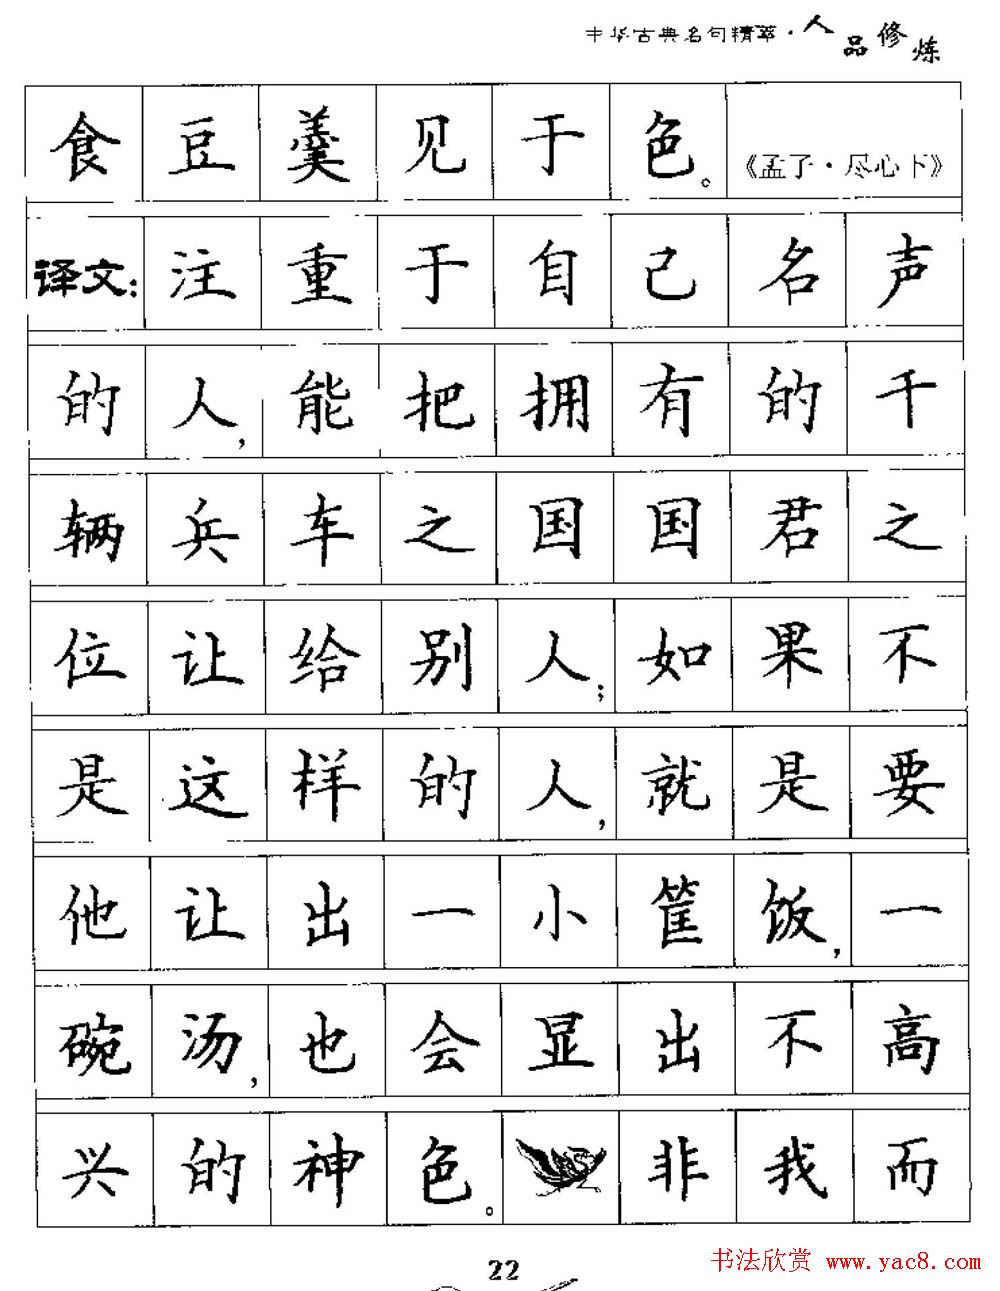 中华古典名句精萃·人品修炼
食豆羹见于色。《孟子·尽心下》
译文:注重于自己名声
的人,能把拥有的千
辆兵车之国国君之
位让给别人;如果不
是这样的人,就是要
他让出一小筐饭,一
碗汤,也会显出不高
兴的神色。非我而
22
书法欣赏 www.yac8.com